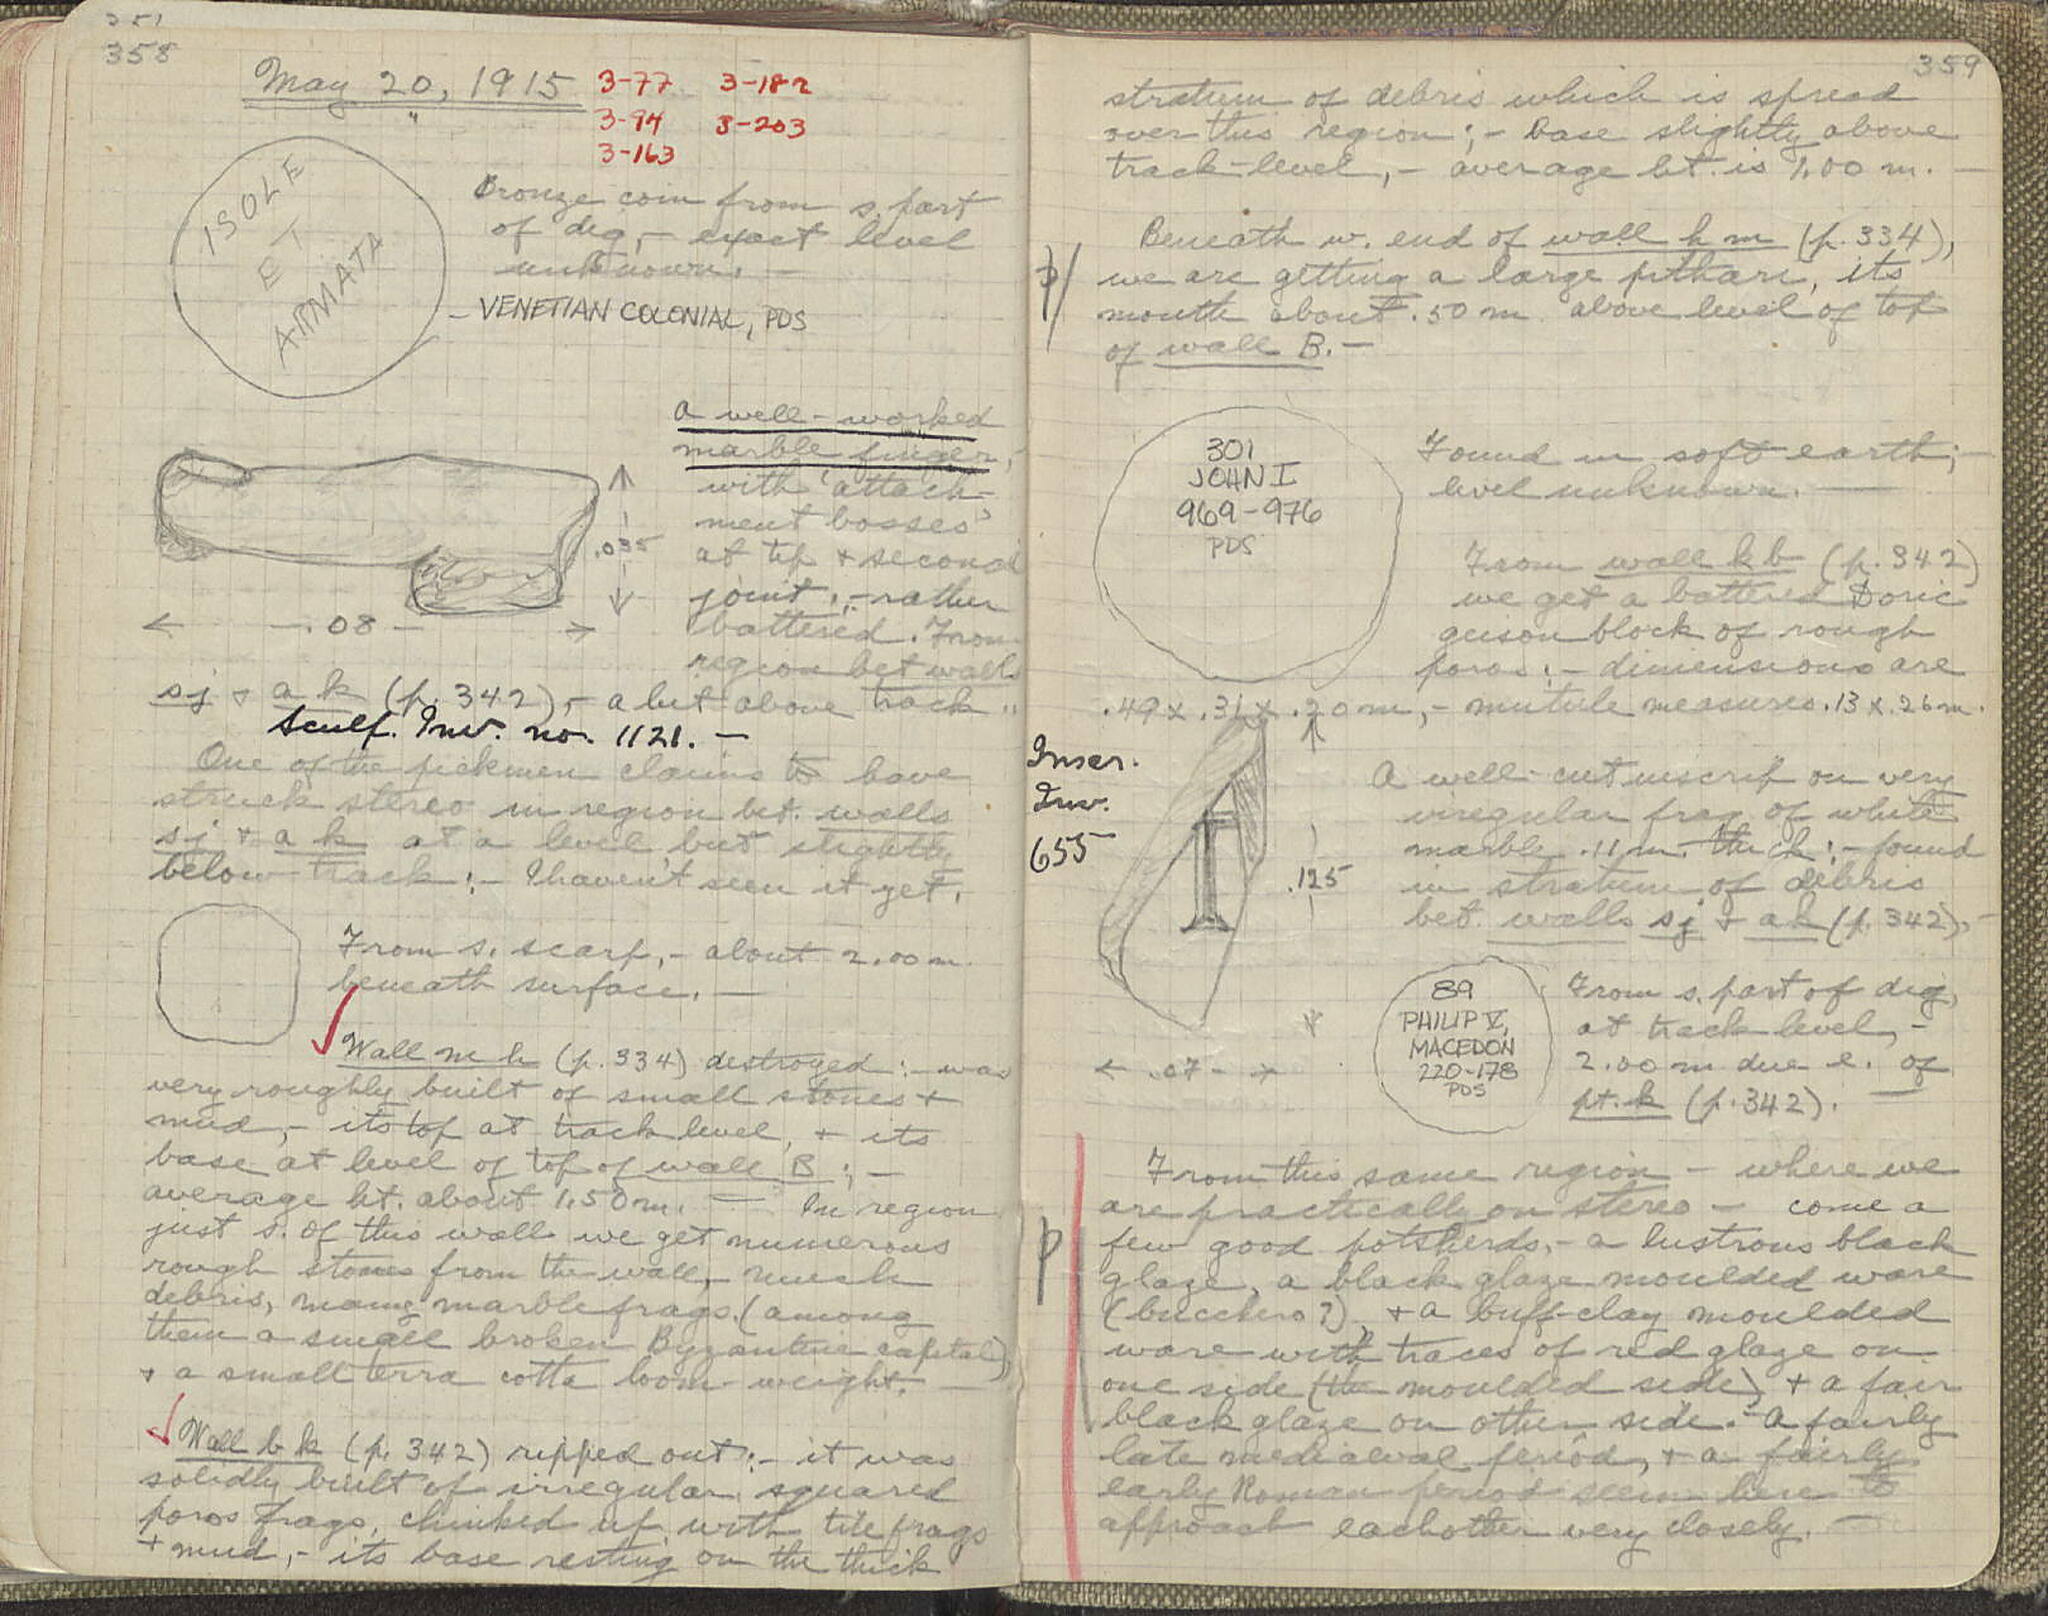 351
358
May 20, 1915
3-77 3-182
3-94 3-203
3-163
ISOLE
ET
ARMATA
Bronze coin from s. part
of dig, - exact level
unknown. -
- VENETIAN COLONIAL, PDS
A well-worked
marble finger, -
with 'attach-
ment bosses'
at tip + second
joint, - rather
battered. From
region bet walls
.035
.08
sj + a k (p. 342), - a bit above track "
Sculp. Inv. no. 1121. -
One of the pickmen claims to have
struck stereo in region bet. walls
sj + a k at a level but slightly
below track: - I haven't seen it yet.
From s. scarp, - about 2.00 m.
beneath surface. -
Wall m h (p. 334) destroyed: - was
very roughly built of small stones +
mud, - its top at track level, + its
base at level of top of wall B; -
average ht. about 1.50 m. - In region
just s. of this wall we get numerous
rough stones from the wall, much
debris, many marble frags. (among
them a small broken Byzantine capital),
+ a small terra cotta loom-weight. -
Wall b k (p. 342) ripped out: - it was
solidly built of irregular squared
poros frags, chinked up with tile frags
+ mud, - its base resting on the thick
359
stratum of debris which is spread
over this region; - base slightly above
track-level, - average ht. is 1.00 m. -
Beneath w. end of wall h m (p. 334),
p/ we are getting a large pithari, its
mouth about .50 m above level of top
of wall B. -
301
JOHN I
969-976
PDS
Found in soft earth; -
level unknown. -
From wall k b (p. 342)
we get a battered Doric
geison block of rough
poros: - dimensions are
.49 x .31 x .20 m, - mutule measures .13 x .26 m.
Inscr.
Inv.
655
A well-cut inscrip on very
irregular frag of white
marble .11 m. thick: - found
in stratum of debris
bet. walls sj + ak (p. 342). -
.125
.07
89
PHILIP V,
MACEDON
220-178
PDS
From s. part of dig,
at track level, -
2.00 m due e. of
pt. k (p. 342). -
From this same region - where we
are practically on stereo - come a
p few good potsherds, - a lustrous black
glaze, a black glaze moulded ware
(bucchero?), + a buff-clay moulded
ware with traces of red glaze on
one side (the moulded side) + a fair
black glaze on other side. - A fairly
late mediaeval period, + a fairly
early Roman period seem here to
approach eachother very closely. -